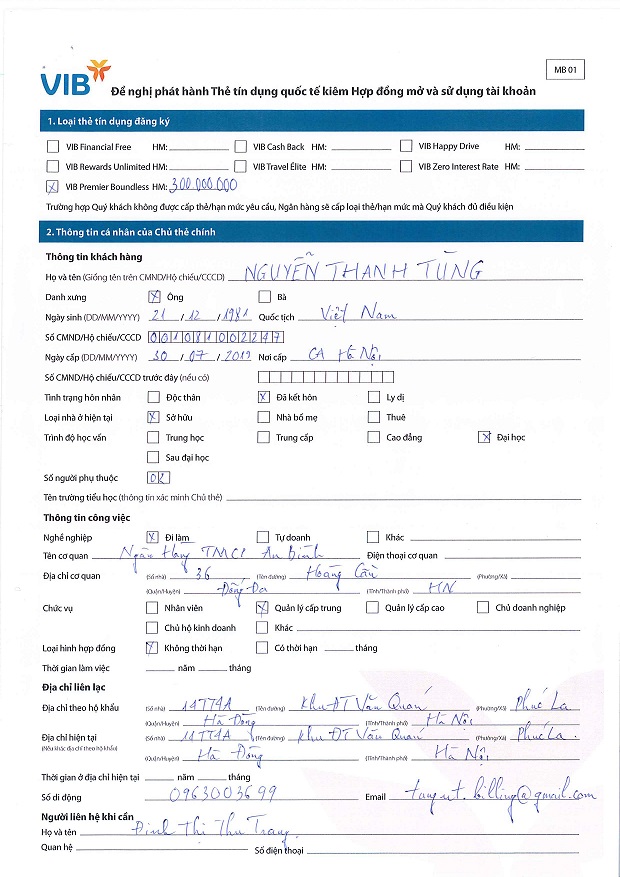 VIB
MB 01
Đề nghị phát hành Thẻ tín dụng quốc tế kiêm Hợp đồng mở và sử dụng tài khoản
1. Loại thẻ tín dụng đăng ký
VIB Financial Free HM: VIB Cash Back HM: VIB Happy Drive HM:
VIB Rewards Unlimited HM: VIB Travel Élite HM: VIB Zero Interest Rate HM:
X VIB Premier Boundless HM: 300.000.000
Trường hợp Quý khách không được cấp thẻ/hạn mức yêu cầu, Ngân hàng sẽ cấp loại thẻ/hạn mức mà Quý khách đủ điều kiện
2. Thông tin cá nhân của Chủ thẻ chính
Thông tin khách hàng
Họ và tên (Giống tên trên CMND/Hộ chiếu/CCCD) NGUYỄN THANH TÙNG
Danh xưng X Ông Bà
Ngày sinh (DD/MM/YYYY) 21 / 12 / 1981 Quốc tịch Việt Nam
Số CMND/Hộ chiếu/CCCD 001081002247
Ngày cấp (DD/MM/YYYY) 30 / 07 / 2019 Nơi cấp CA Hà Nội
Số CMND/Hộ chiếu/CCCD trước đây (nếu có)
Tình trạng hôn nhân Độc thân X Đã kết hôn Ly dị
Loại nhà ở hiện tại X Sở hữu Nhà bố mẹ Thuê
Trình độ học vấn Trung học Trung cấp Cao đẳng X Đại học
Sau đại học
Số người phụ thuộc 02
Tên trường tiểu học (thông tin xác minh Chủ thẻ)
Thông tin công việc
Nghề nghiệp X Đi làm Tự doanh Khác
Tên cơ quan Ngân Hàng TMCP An Bình Điện thoại cơ quan
Địa chỉ cơ quan (Số nhà) 36 (Tên đường) Hoàng Cầu (Phường/Xã)
(Quận/Huyện) Đống Đa (Tỉnh/Thành phố) HN
Chức vụ Nhân viên X Quản lý cấp trung Quản lý cấp cao Chủ doanh nghiệp
Chủ hộ kinh doanh Khác
Loại hình hợp đồng X Không thời hạn Có thời hạn tháng
Thời gian làm việc năm tháng
Địa chỉ liên lạc
Địa chỉ theo hộ khẩu (Số nhà) 14TT4A (Tên đường) Khu ĐT Văn Quán (Phường/Xã) Phúc La
(Quận/Huyện) Hà Đông (Tỉnh/Thành phố) Hà Nội
Địa chỉ hiện tại (Số nhà) 14TT4A (Tên đường) Khu ĐT Văn Quán (Phường/Xã) Phúc La.
(Nếu khác địa chỉ theo hộ khẩu) (Quận/Huyện) Hà Đông (Tỉnh/Thành phố) Hà Nội
Thời gian ở địa chỉ hiện tại năm tháng
Số di động 0963003699 Email tungnt.billing@gmail.com
Người liên hệ khi cần
Họ và tên Đinh Thị Thu Trang
Quan hệ Số điện thoại